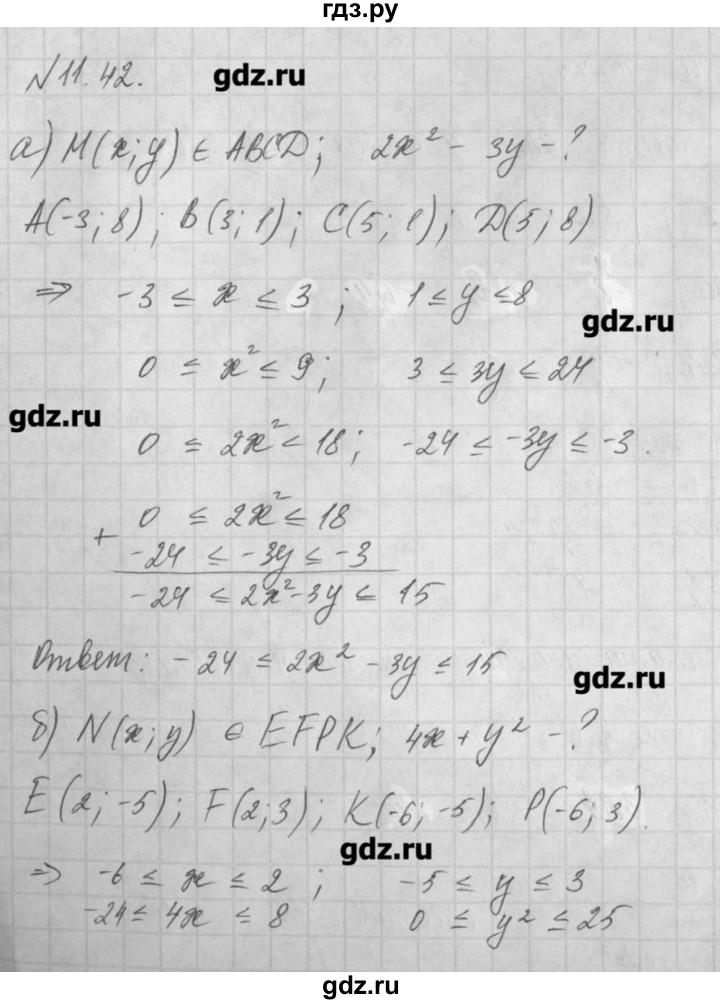 гдз.ру
№11.42. gdz.ru
а) M(x; y) ∈ ABCD; 2x² - 3y - ?
A(-3; 8); B(3; 1); C(5; 1); D(5; 8)
⇒ -3 ≤ x ≤ 3; 1 ≤ y ≤ 8
gdz.ru
0 ≤ x² ≤ 9; 3 ≤ 3y ≤ 24
gdz.ru
0 ≤ 2x² ≤ 18; -24 ≤ -3y ≤ -3.
0 ≤ 2x² ≤ 18
+
-24 ≤ -3y ≤ -3
-24 ≤ 2x² - 3y ≤ 15
Ответ: -24 ≤ 2x² - 3y ≤ 15
gdz.ru
б) N(x; y) ∈ EFPK; 4x + y² - ?
E(2; -5); F(2; 3); K(-6; -5); P(-6; 3).
gdz.ru
⇒ -6 ≤ x ≤ 2; -5 ≤ y ≤ 3
-24 ≤ 4x ≤ 8 0 ≤ y² ≤ 25
gdz.ru